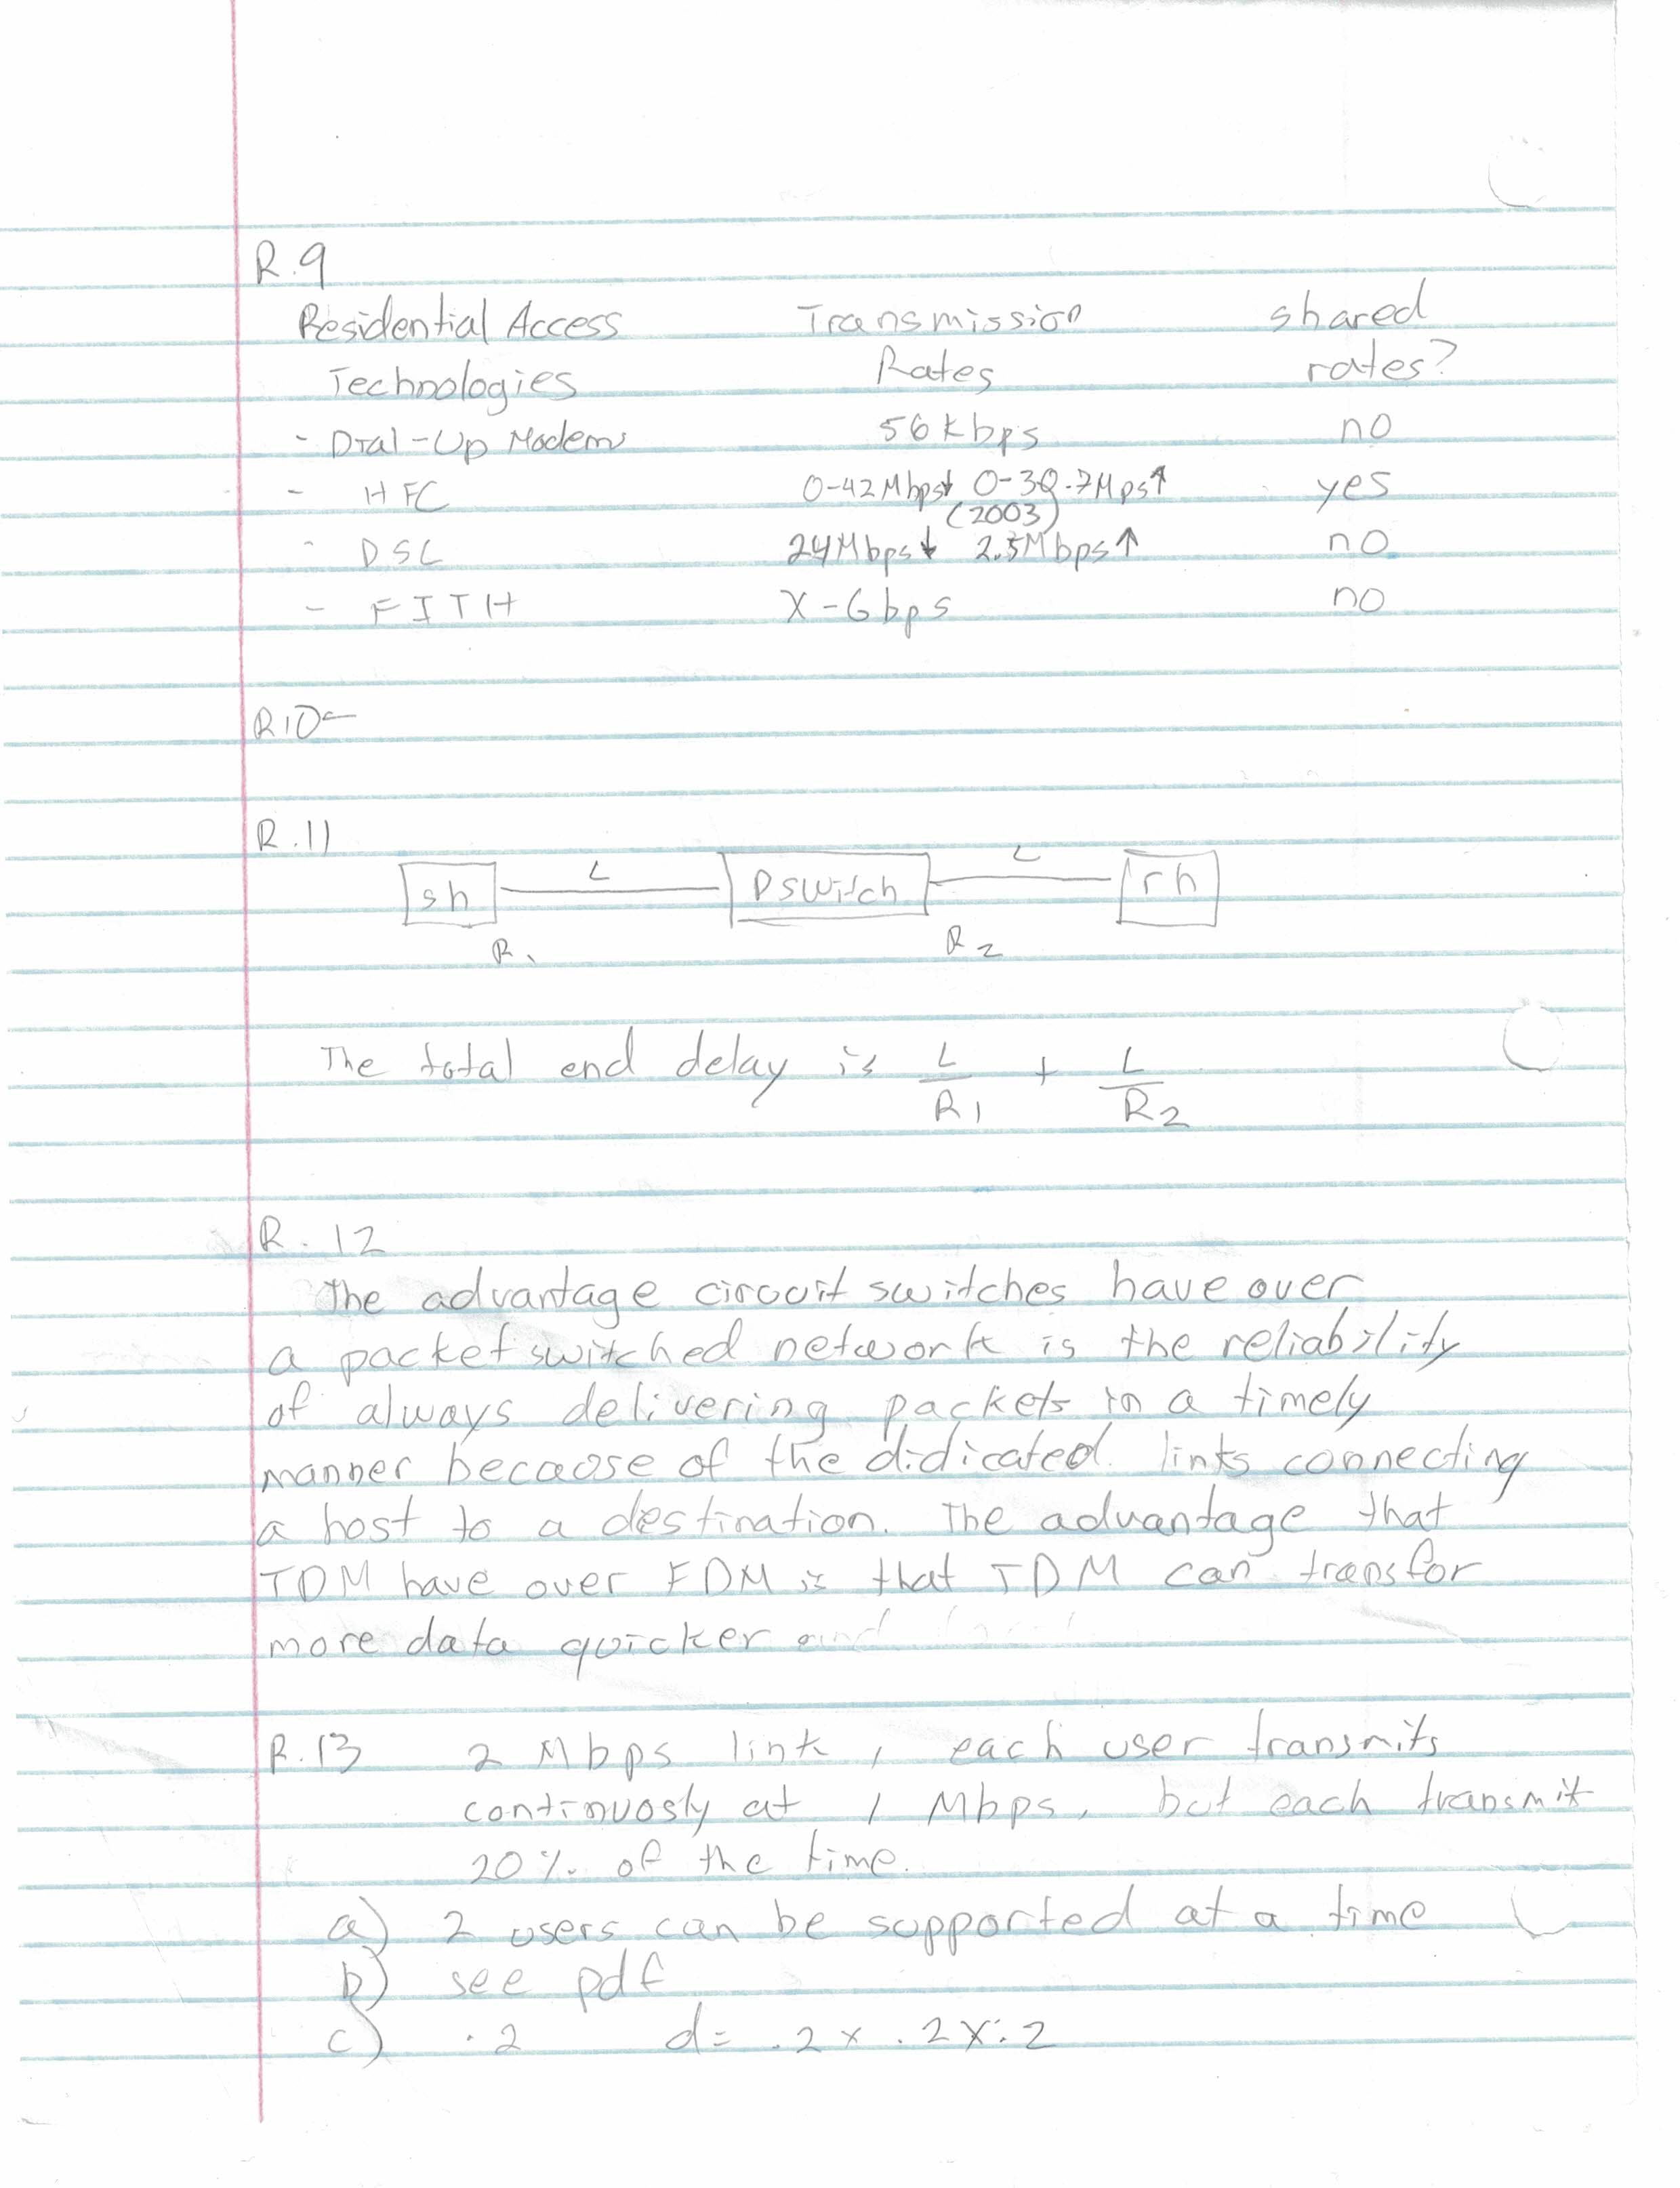 R.9
Residential Access Transmission shared
Technologies Rates rates?
- Dial-Up Modems 56kbps no
- HFC 0-42Mbps↓ 0-30.7Mps↑ yes
(2003)
- DSL 24Mbps↓ 2.5Mbps↑ no
- FITH X-Gbps no
R10-
R.11
L L
sh Pswitch rh
R1 R2
The total end delay is L/R1 + L/R2
R. 12
The advantage circuit switches have over
a packet switched network is the reliability
of always delivering packets in a timely
manner because of the didicated links connecting
a host to a destination. The advantage that
TDM have over FDM is that TDM can transfor
more data quicker and
R.13 2 Mbps link, each user transmits
continuosly at 1 Mbps, but each transmit
20% of the time.
a) 2 users can be supported at a time
b) see pdf
c) .2 d= .2 x .2 x .2